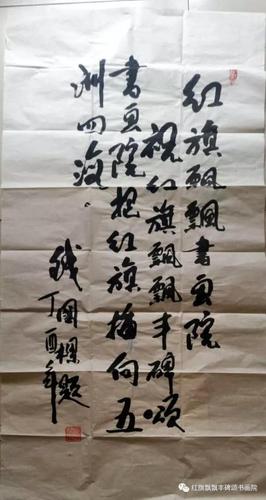 红旗飘飘书画院
祝红旗飘飘丰碑颂
书画院把红旗播向五
洲四海。
钱国樑题
丁酉年
红旗飘飘丰碑颂书画院